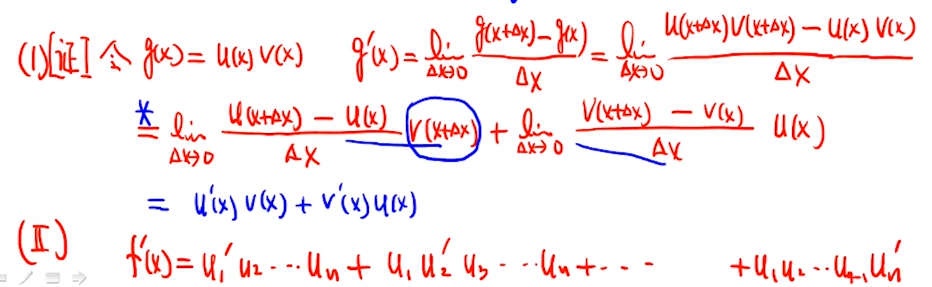 (1)[证] 令 g(x) = u(x) v(x) g'(x) = lim_{Δx→0} \frac{g(x+Δx) - g(x)}{Δx} = lim_{Δx→0} \frac{u(x+Δx)v(x+Δx) - u(x) v(x)}{Δx}
* = lim_{Δx→0} \frac{u(x+Δx) - u(x)}{Δx} v(x+Δx) + lim_{Δx→0} \frac{v(x+Δx) - v(x)}{Δx} u(x)
= u'(x) v(x) + v'(x) u(x)
(II) f'(x) = u_1' u_2 ··· u_n + u_1 u_2' u_3 ··· u_n + ··· + u_1 u_2 ··· u_{n-1} u_n'